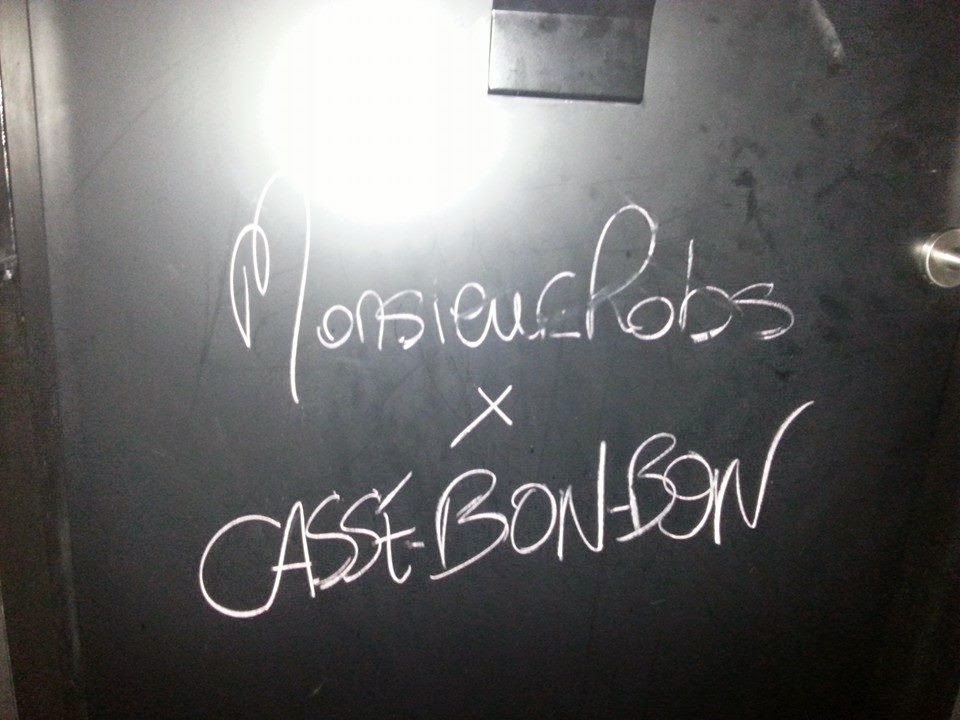 Monsieur Robs
x
CASSE-BON-BON